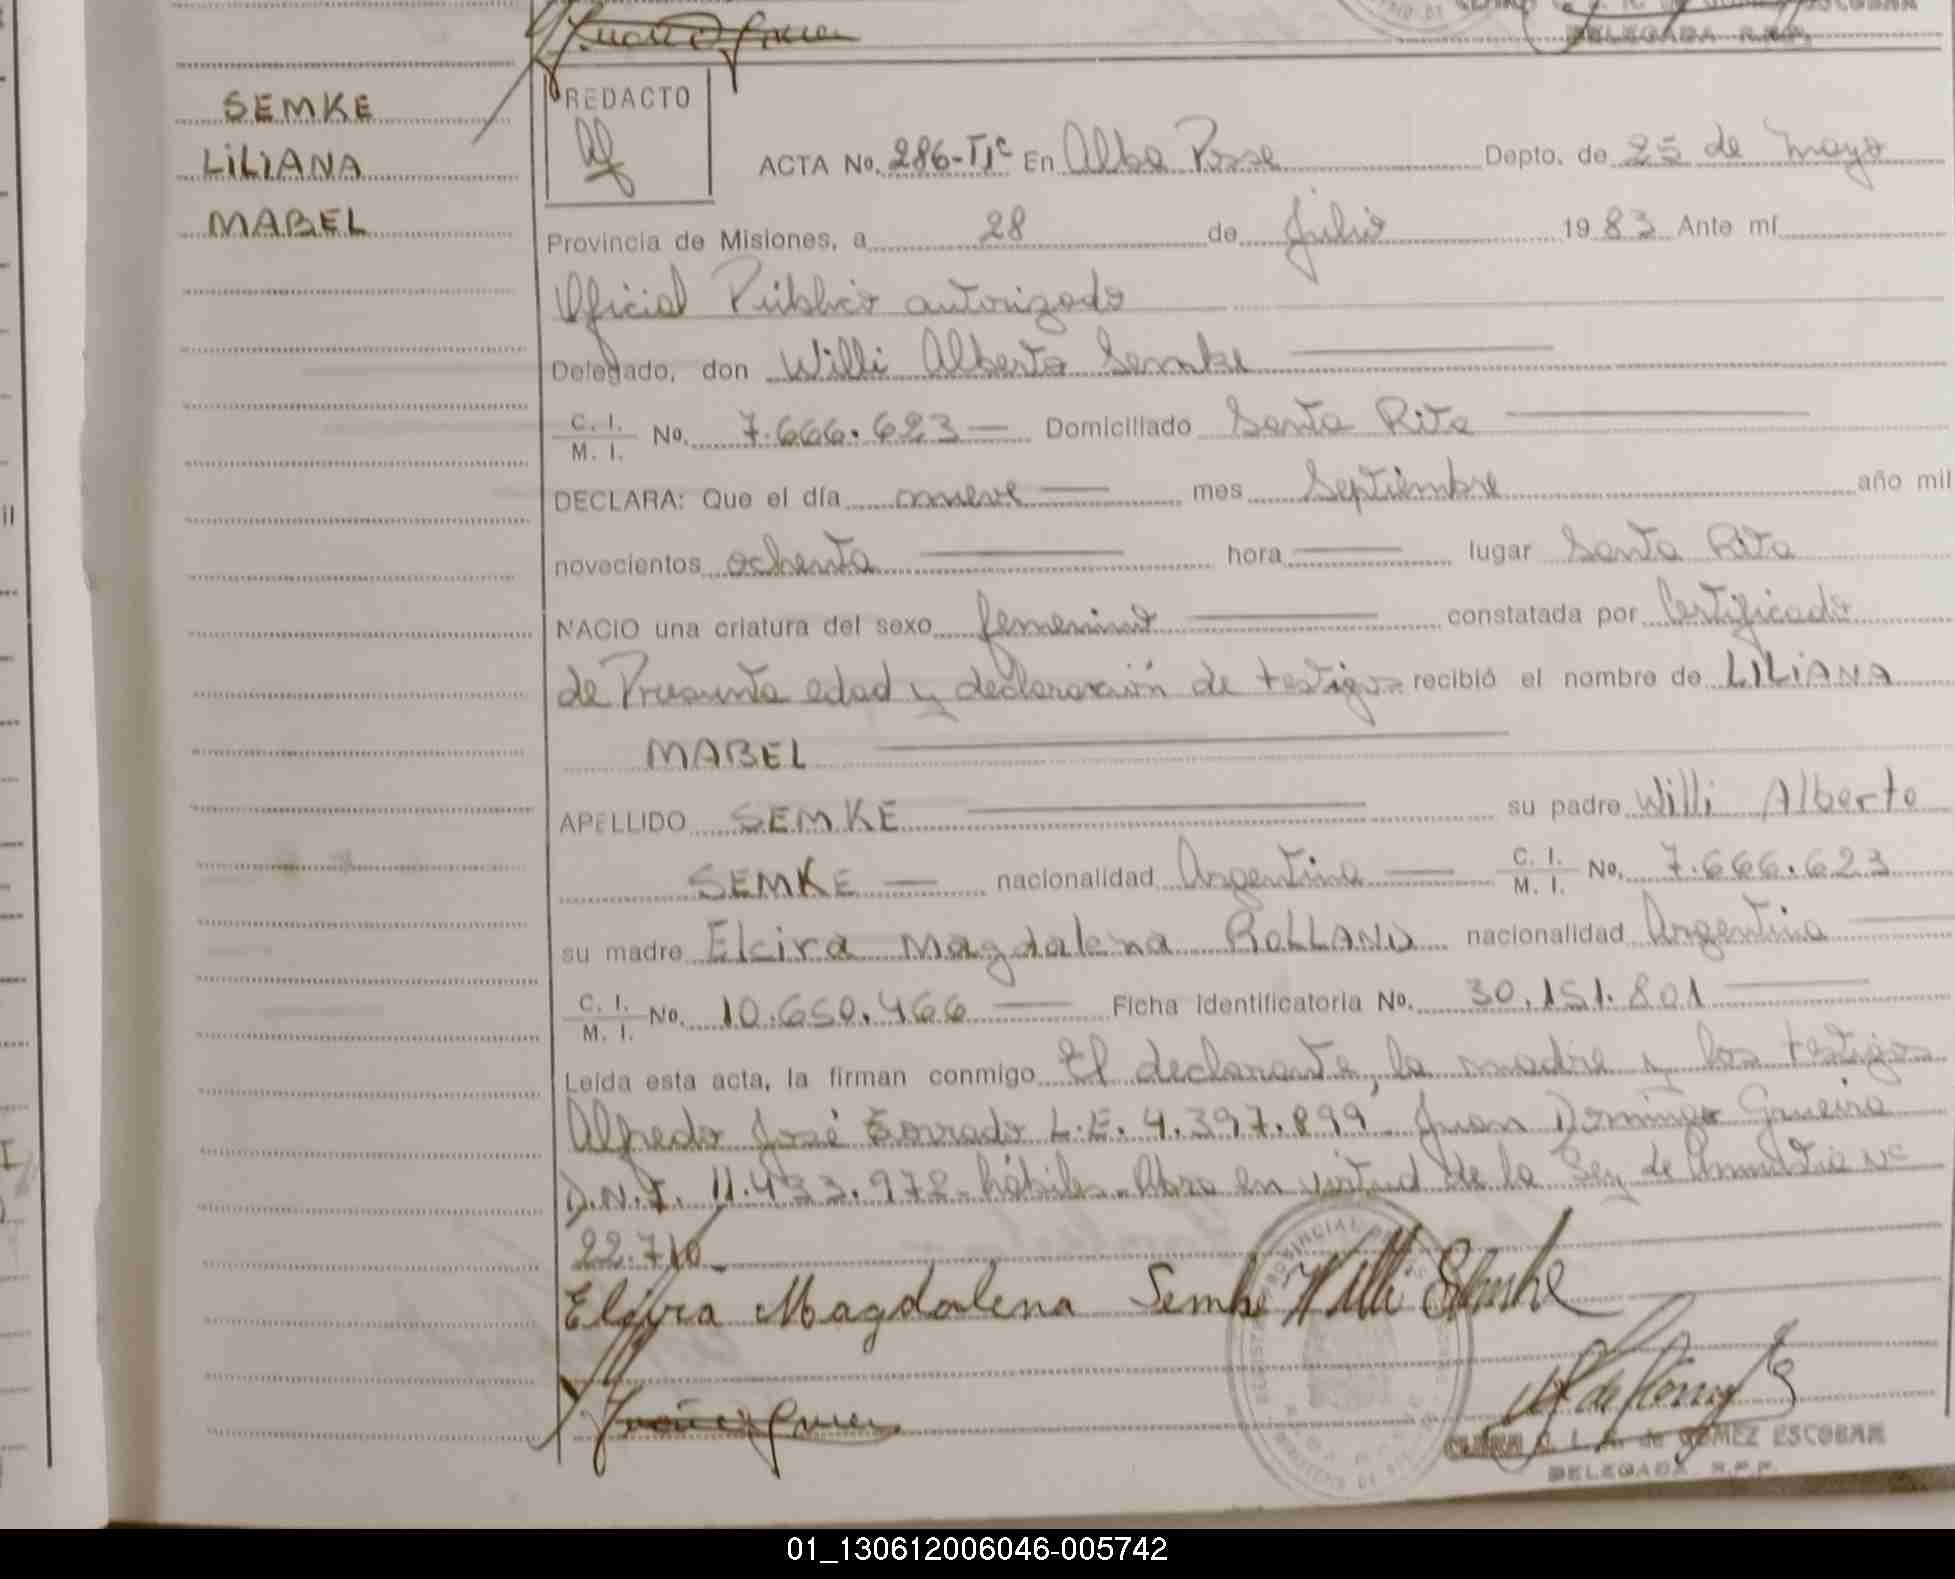 DELEGADA R.P.P.
SEMKE
LILIANA
MABEL
REDACTO
ACTA No. 286-Tº En Alba Posse Depto. de 25 de Mayo
Provincia de Misiones, a 28 de Julio 1983 Ante mí
Oficial Público autorizado
Delegado, don Willi Alberto Semke
C. I. / M. I. No. 7.666.623 Domiciliado Santa Rita
DECLARA: Que el día nueve mes Septiembre año mil
novecientos ochenta hora lugar Santa Rita
NACIO una criatura del sexo femenino constatada por Certificado
de Presunta edad y declaración de testigos recibió el nombre de LILIANA
MABEL
APELLIDO SEMKE su padre Willi Alberto
SEMKE nacionalidad Argentina C. I. / M. I. No. 7.666.623
su madre Elcira Magdalena ROLLAND nacionalidad Argentina
C. I. / M. I. No. 10.650.466 Ficha Identificatoria No. 30.151.801
Leída esta acta, la firman conmigo El declarante, la madre y los testigos
Alfredo José L.E. 4.397.899 Juan Domingo
D.N.I. 11.433.972 hábiles. Abro en virtud de la Ley de Amnistía Nº
22.710
Elcira Magdalena Semke Willi Semke
C. L. A. de GOMEZ ESCOBAR
DELEGADA R.P.P.
01_130612006046-005742